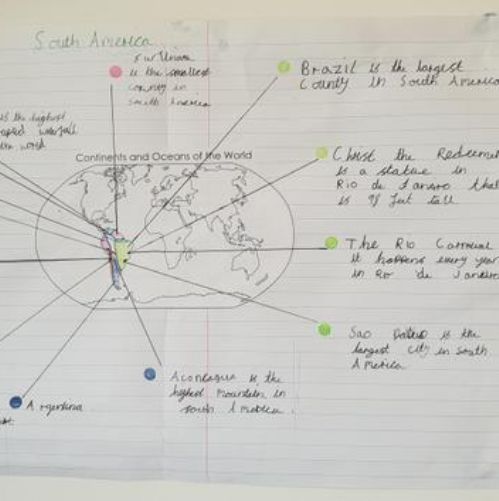 South America
is the smallest
country in
South America
Brazil is the largest
County in South America
is the highest
waterfall
world
Continents and Oceans of the World
Christ the Redeemer
is a statue in
Rio de Janero that
is 98 feet tall
The Rio Carnival
it happens every year
in Rio de Janeiro
Sao Paulo is the
largest city in South
America
Aconcagua is the
highest mountain in
South America.
Argentina